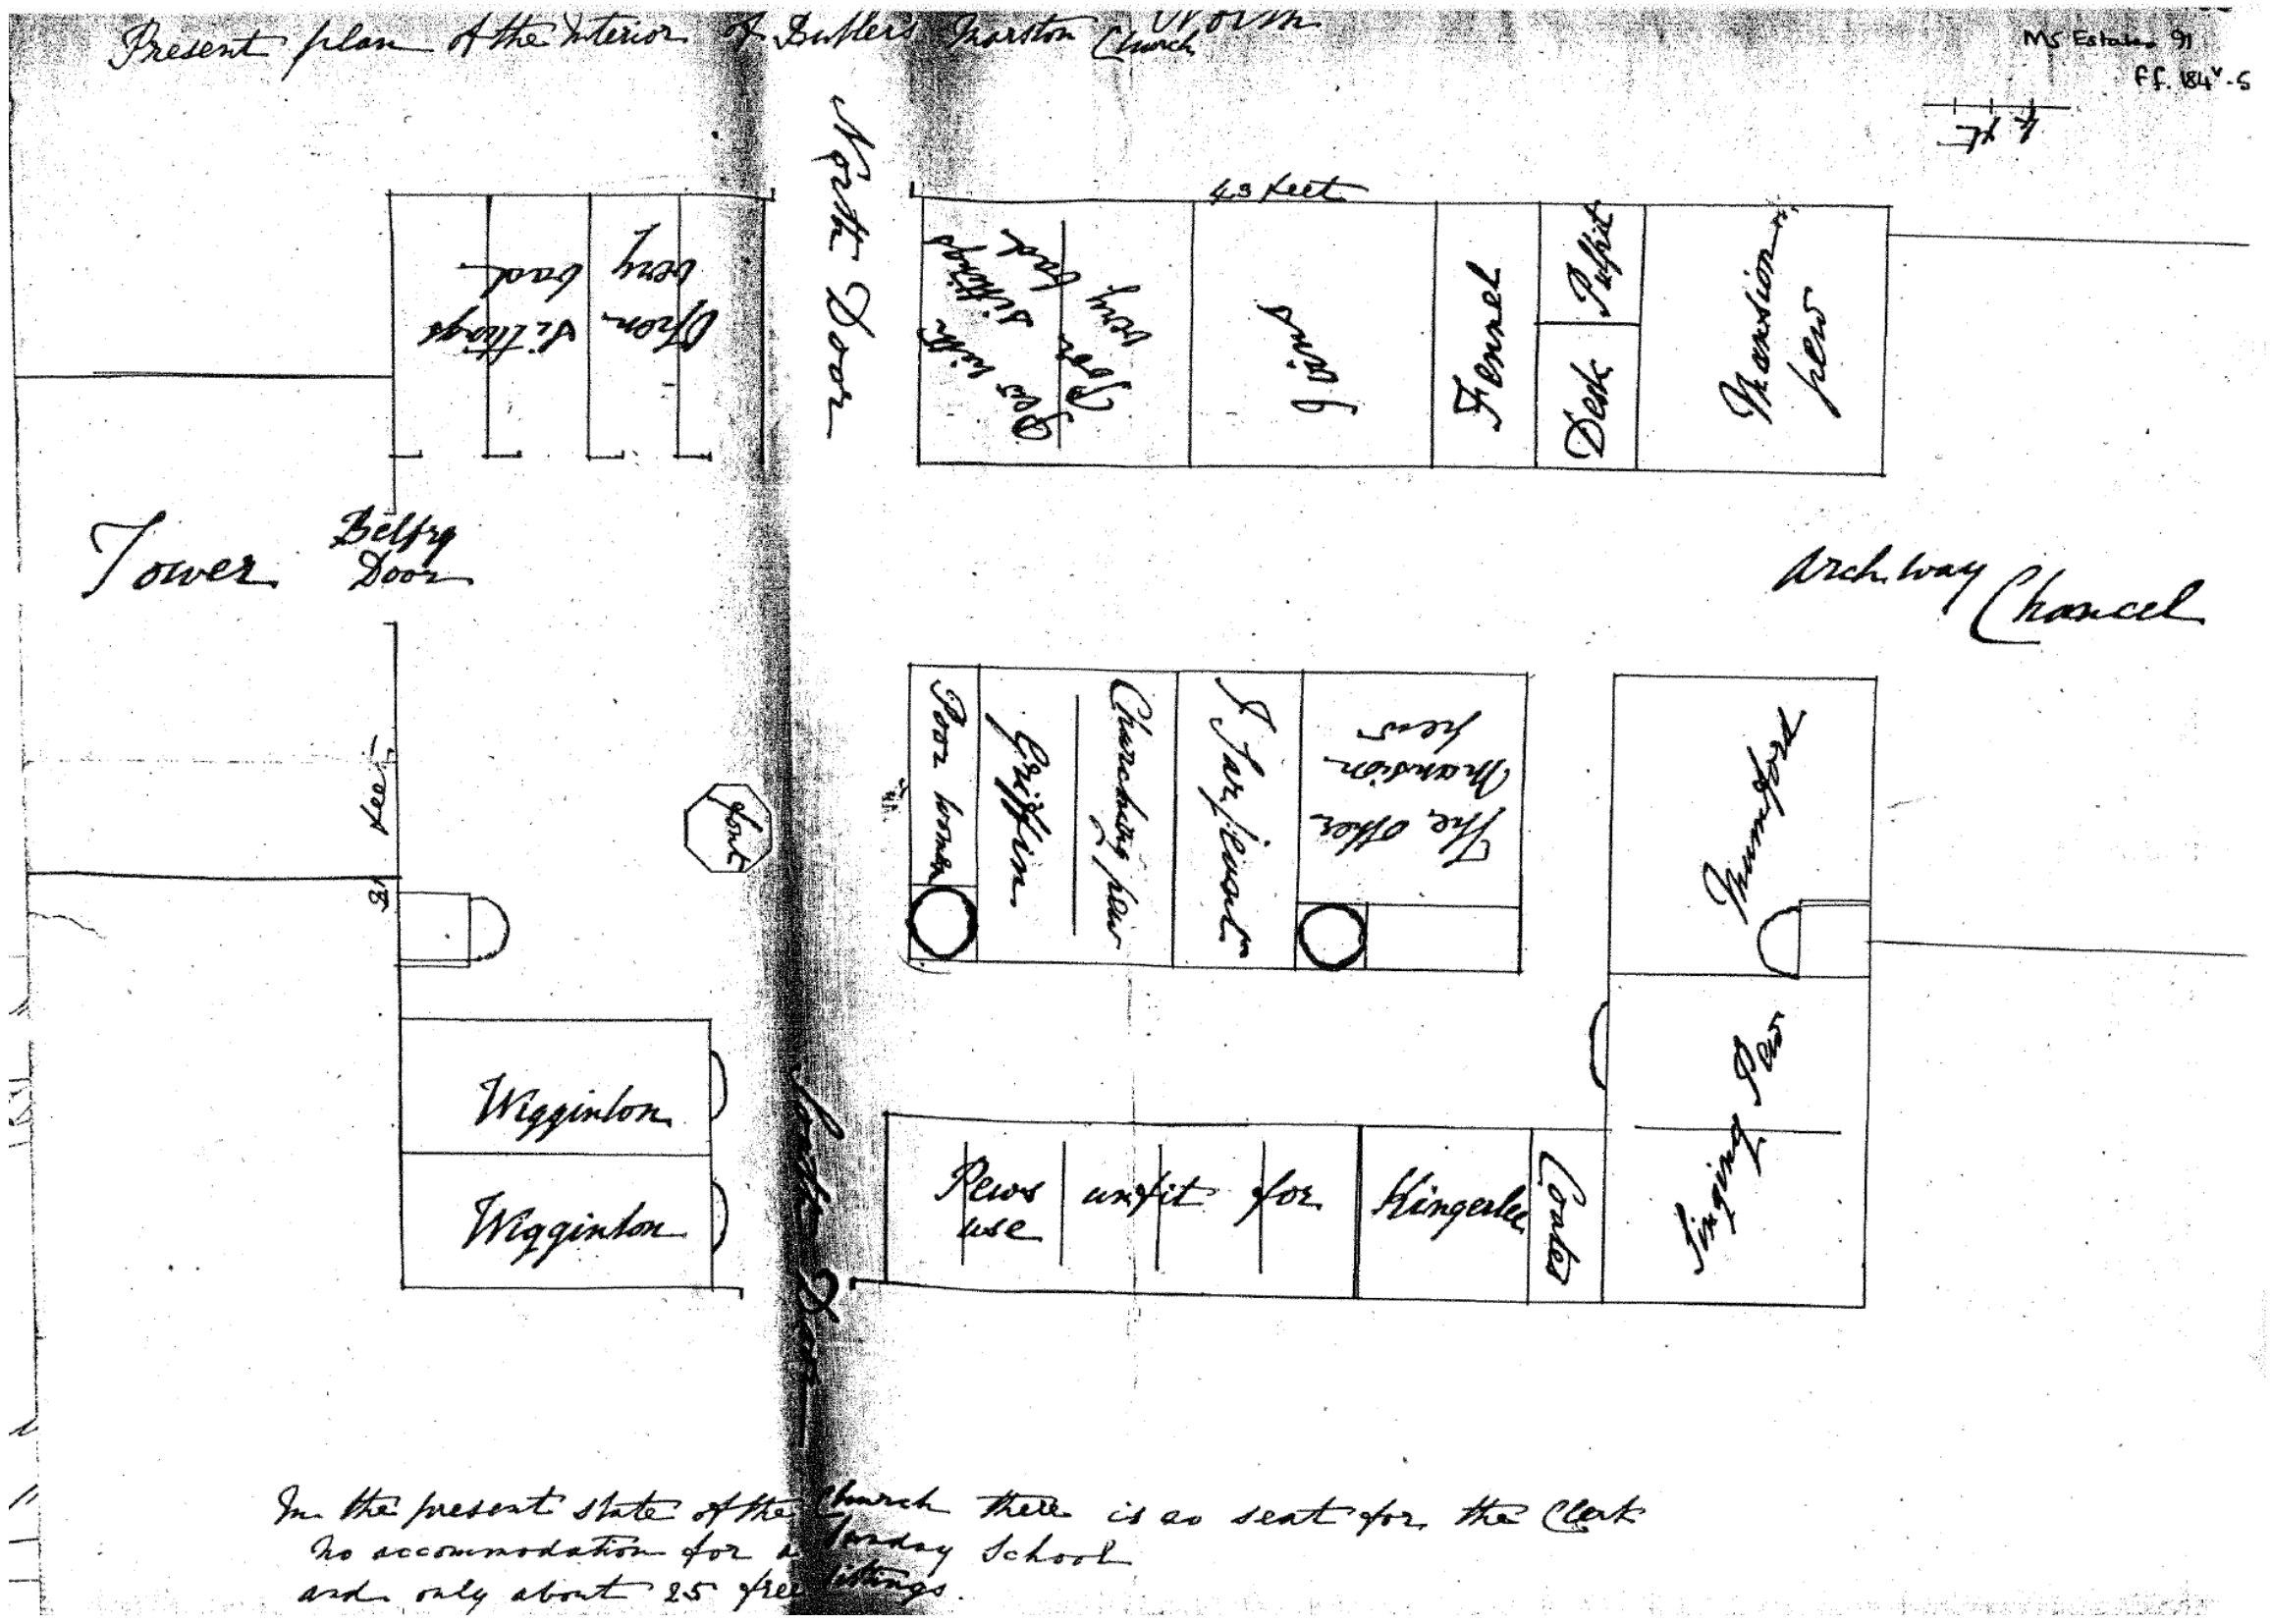 North
Present plan of the Interior of Butlers Marston Church
MS Estates 91
ff. 184v-5
4 ft
North Door
43 feet
Open sittings
very bad
Pew with Poor
sittings very
bad
Fennel
Pulpit
Desk
Mansion
pew
Tower
Belfry
Door
Archway
Chancel
feet
font
Poor women
Griffin
Churching pew
The other
Mansion
pew
Mumford
Singing Pew
Wigginton
Wigginton
South Door
Pews unfit for
use
Kingerlee
Coates
In the present state of the Church there is no seat for the Clerk
No accommodation for a Sunday School
and only about 25 free sittings.